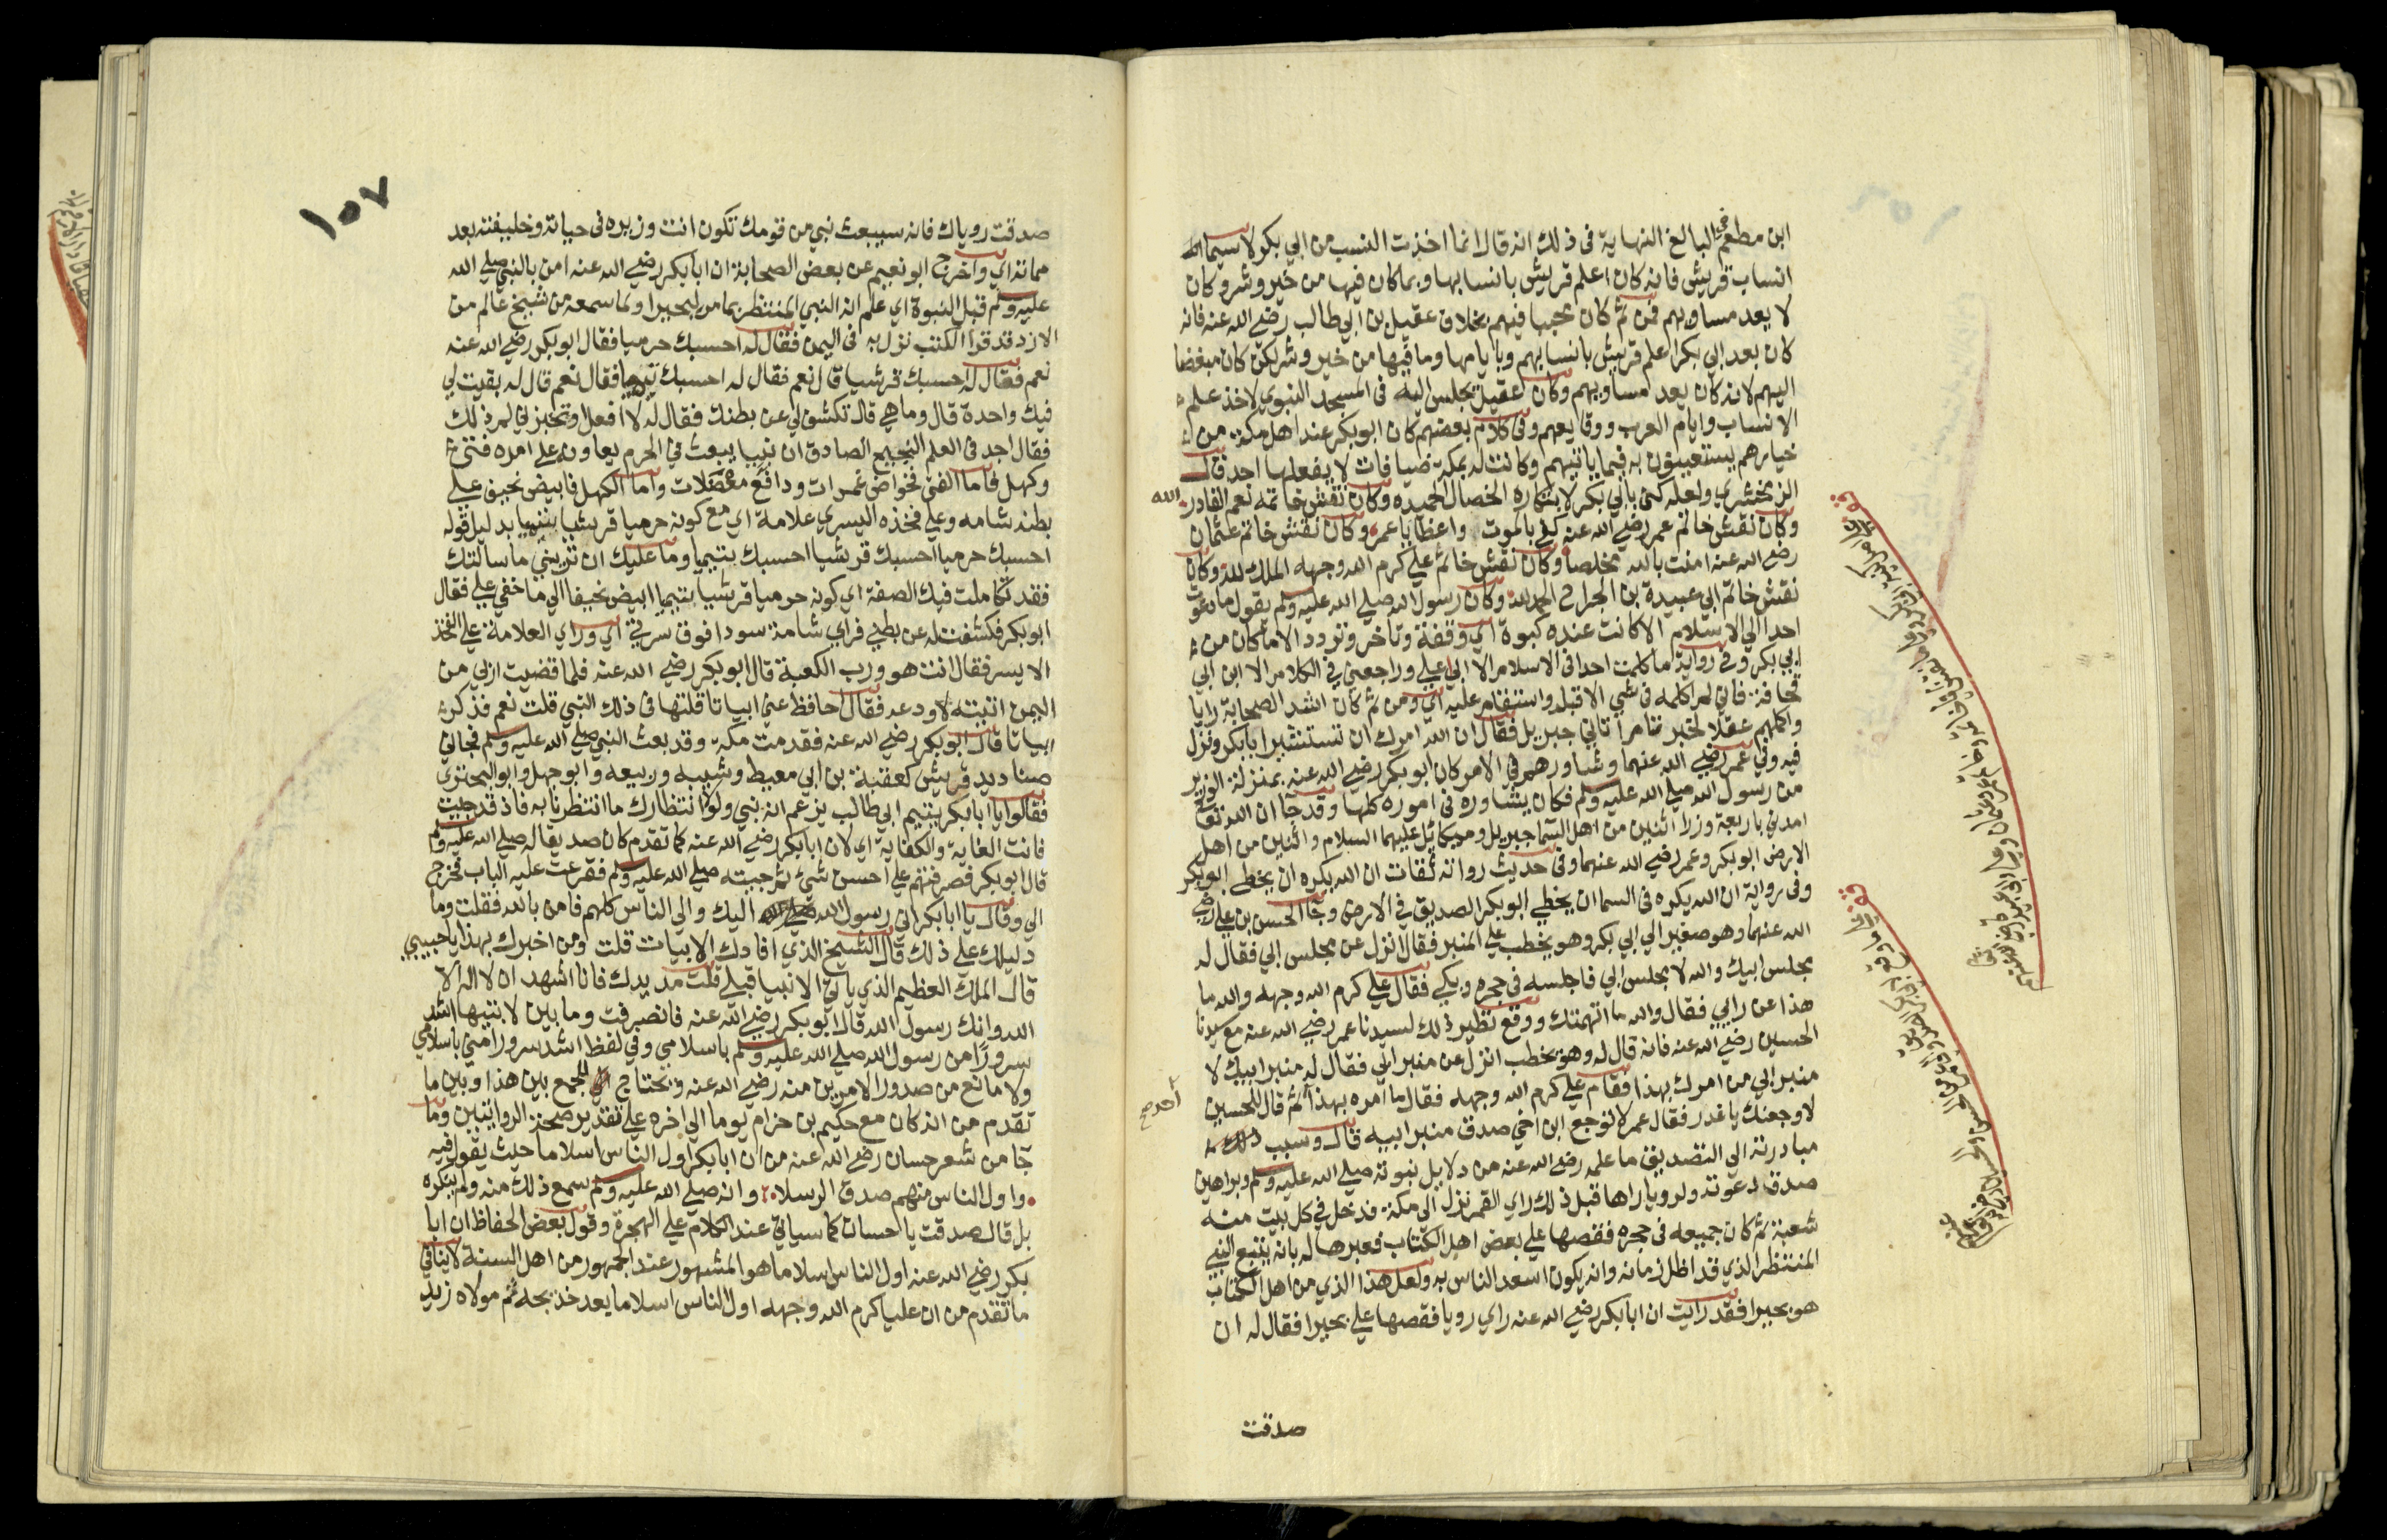 ابن مطعم البالغ النهاية في ذلك انه قال انما اخذت النسب من ابي بكر لاسيما
انساب قريش فانه كان اعلم قريش بانسابها وبما كان فيها من خير وشر وكان
لا يعد مساويهم فمن ثم كان محببا فيهم بخلاف عقيل بن ابي طالب رضي الله عنه فانه
كان بعد ابي بكر اعلم قريش بانسابهم وبايامها وما فيها من خير وشر لكن كان مبغضا
اليهم لانه كان يعد مساويهم وكان عقيل يجلس اليه في المسجد النبوي لاخذ علم
الانساب وايام العرب ووقايعهم وفي كلام بعضهم كان ابو بكر عند اهل مكة من
خيارهم يستعينون به فيما ياتيهم وكانت له بمكة ضيافات لا يفعلها احد قال
الزمخشري ولعله كنى بابي بكر لابتكاره الخصال الحميده وكان نقش خاتمه نعم القادر الله
وكان نقش خاتم عمر رضي الله عنه كفى بالموت واعظا يا عمر وكان نقش خاتم عثمان
رضي الله عنه امنت بالله مخلصا وكان نقش خاتم علي كرم الله وجهه الملك لله وكان
نقش خاتم ابي عبيدة بن الجراح الحمد لله وكان رسول الله صلى الله عليه وسلم يقول ما دعوت
احدا الى الاسلام الا كانت عنده كبوة اي وقفة وتاخر وتردد الا ما كان من
ابي بكر وفي رواية ما كلمت احدا في الاسلام الا ابى علي وراجعني في الكلام الا ابن ابي
قحافة فاني لم اكلمه في شي الا قبله واستقام عليه اي ومن ثم كان اشد الصحابة رايا
واكملهم عقلا لخبر تمام اتاني جبريل فقال ان الله امرك ان تستشير ابا بكر ونزل
فيه وفي عمر رضي الله عنهما وشاورهم في الامر كان ابو بكر رضي الله عنه بمنزلة الوزير
من رسول الله صلى الله عليه وسلم فكان يشاوره في اموره كلها وقد جا ان الله تعالى
امدني باربعة وزرا اثنين من اهل السما جبريل وميكائيل عليهما السلام واثنين من اهل
الارض ابو بكر وعمر رضي الله عنهما وفي حديث رواته ثقات ان الله يكره ان يخطي ابو بكر
وفي رواية ان الله يكره في السما ان يخطي ابو بكر الصديق في الارض وجا الحسن بن علي رضي
الله عنهما وهو صغير الى ابي بكر وهو يخطب على المنبر فقال انزل عن مجلس ابي فقال له
مجلس ابيك والله لا مجلس ابي فاجلسه في حجره وبكى فقال علي كرم الله وجهه والله ما
هذا عن رايي فقال والله ما اتهمتك ووقع نظير ذلك لسيدنا عمر رضي الله عنه مع سيدنا
الحسين رضي الله عنه فانه قال له وهو يخطب انزل عن منبر ابي فقال له منبر ابيك لا
منبر ابي من امرك بهذا فقام علي كرم الله وجهه فقال ما امره بهذا احد ثم قال للحسين
لاوجعنك يا غدر فقال عمر لا توجع ابن اخي صدق منبر ابيه قال وسبب ذلك
مبادرته الى التصديق ما علمه رضي الله عنه من دلايل نبوته صلى الله عليه وسلم وبراهين
صدق دعوته ولرويا راها قبل ذلك راى القمر نزل الى مكة فدخل في كل بيت منه
شعبة ثم كان جميعه في حجره فقصها على بعض اهل الكتاب فعبرها له بانه يتبع النبي
المنتظر الذي قد اظل زمانه وانه يكون اسعد الناس به ولعل هذا الذي من اهل الكتاب
هو بحيرا فقد رايت ان ابا بكر رضي الله عنه راي رويا فقصها على بحيرا فقال له ان
صدقت
احد صح
١٠٧
صدقت روياك فانه سيبعث نبي من قومك تكون انت وزيره في حياته وخليفته بعد
مماته اي واخرج ابو نعيم عن بعض الصحابة ان ابا بكر رضي الله عنه امن بالنبي صلى الله
عليه وسلم قبل النبوة اي علم انه النبي المنتظر بما مر لبحيرا ولما سمعه من شيخ عالم من
الازد قد قرا الكتب نزل به في اليمن فقال له احسبك حرميا فقال ابو بكر رضي الله عنه
نعم فقال له احسبك قرشيا قال نعم فقال له احسبك تيميا فقال نعم قال له بقيت لي
فيك واحدة قال وما هي قال تكشف لي عن بطنك فقال له لا افعل او تخبرني لم ذلك
فقال اجد في العلم النجيح الصادق ان نبيا يبعث في الحرم يعاون على امره فتى
وكهل فاما الفتى فخواض غمرات ودافع معضلات واما الكهل فابيض نحيف على
بطنه شامه وعلى فخذه اليسرى علامة اي مع كونه حرميا قرشيا تيميا بدليل قوله
احسبك حرميا احسبك قرشيا احسبك تيميا وما عليك ان تريني ما سالتك
فقد تكاملت فيك الصفة اي كونه حرميا قرشيا تيميا ابيض نحيفا الى ما خفي علي فقال
ابو بكر فكشفت له عن بطني فراى شامة سودا فوق سرتي اي وراى العلامة على الفخذ
الايسر فقال انت هو ورب الكعبة قال ابو بكر رضي الله عنه فلما قضيت اربي من
اليمن اتيته لاودعه فقال احافظ عني ابياتا قلتها في ذلك النبي قلت نعم فذكر
ابياتا قال ابو بكر رضي الله عنه فقدمت مكة وقد بعث النبي صلى الله عليه وسلم فجاني
صناديد قريش كعقبة بن ابي معيط وشيبه وربيعه وابو جهل وابو البحتري
فقالوا يا ابا بكر يتيم ابي طالب يزعم انه نبي ولولا انتظارك ما انتظرنا به فاذ قد جيت
فانت الغاية والكفاية اي لان ابا بكر رضي الله عنه كما تقدم كان صديقا له صلى الله عليه وسلم
قال ابو بكر فصرفتهم على احسن شي ثم جيته صلى الله عليه وسلم فقرعت عليه الباب فخرج
الي وقال يا ابا بكر اني رسول الله اليك والى الناس كلهم فامن بالله فقلت وما
دليلك على ذلك قال الشيخ الذي افادك الابيات قلت ومن اخبرك بهذا يا حبيبي
قال الملك العظيم الذي ياتي الانبيا قبلي قلت مد يدك فانا اشهد ان لا اله الا
الله وانك رسول الله قال ابو بكر رضي الله عنه فانصرفت وما بين لابتيها اشد
سرورا من رسول الله صلى الله عليه وسلم باسلامي وفي لفظ اشد سرورا مني باسلامي
ولا مانع من صدور الامرين منه رضي الله عنه ويحتاج للجمع بين هذا وبين ما
تقدم من انه كان مع حكيم بن حزام يوما الى اخره على تقدير صحة الروايتين وما
جا من شعر حسان رضي الله عنه من ان ابا بكر اول الناس اسلاما حيث يقول فيه
واول الناس منهم صدق الرسلا وانه صلى الله عليه وسلم سمع ذلك منه ولم ينكره
بل قال صدقت يا حسان كما سياتي عند الكلام على الهجرة وقول بعض الحفاظ ان ابا
بكر رضي الله عنه اول الناس اسلاما هو المشهور عند الجمهور من اهل السنة لا ينافي
ما تقدم من ان عليا كرم الله وجهه اول الناس اسلاما بعد خديجه ثم مولاه زيد